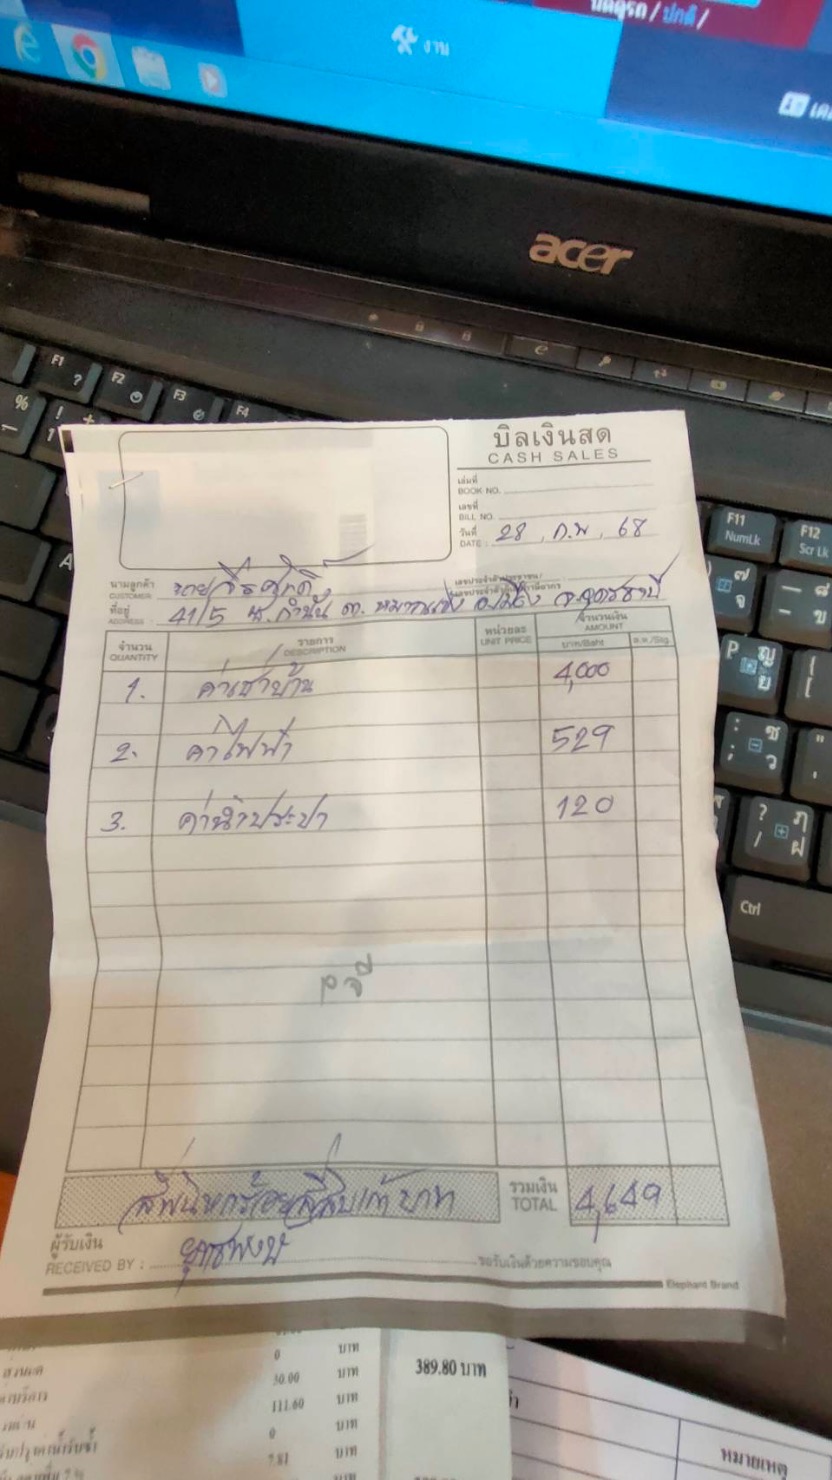 บัดดูรถ / ปกติ /
งาน
acer
F1
F2
F3
F4
F11
NumLk
F12
Scr Lk
Ctrl
บิลเงินสด
CASH SALES
เล่มที่
BOOK NO.
เลขที่
BILL NO.
วันที่
DATE : 28 . ก.พ . 68
นามลูกค้า
CUSTOMER
ที่อยู่
ADDRESS : 41/5 ม. กำนัน ต. หมากแข้ง อ.เมือง จ.อุดรธานี
จำนวน
QUANTITY
รายการ
DESCRIPTION
หน่วยละ
UNIT PRICE
จำนวนเงิน
AMOUNT
บาท/Baht
ส.ต./Stg.
1. ค่าเช่าบ้าน 4,000
2. ค่าไฟฟ้า 529
3. ค่าน้ำประปา 120
สี่พันหกร้อยสี่สิบเก้าบาท
รวมเงิน
TOTAL 4,649
ผู้รับเงิน
RECEIVED BY :
ขอรับเงินด้วยความขอบคุณ
Elephant Brand
0 บาท
50.00 บาท
111.60 บาท
0 บาท
7.81 บาท
389.80 บาท
หมายเหตุ